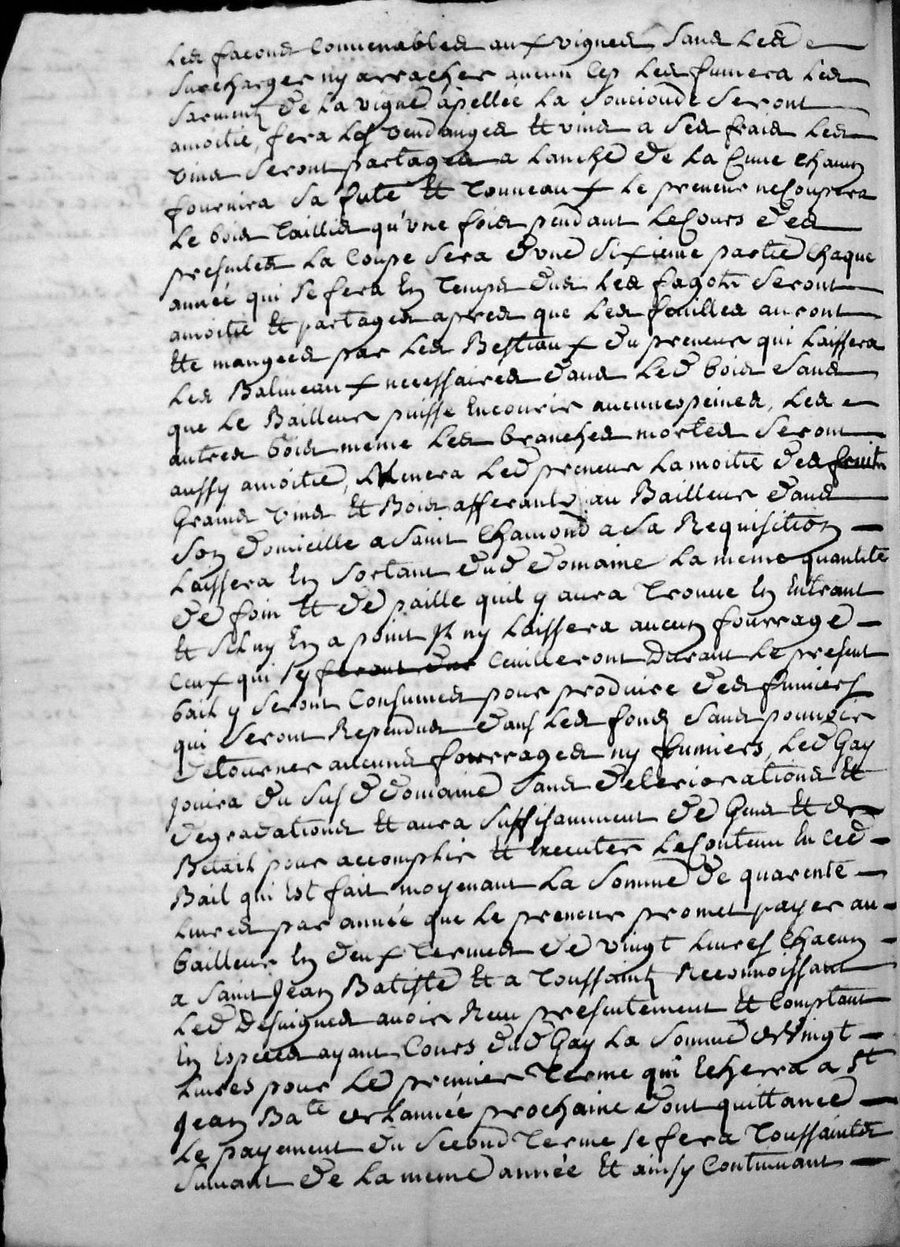 les facons convenables aux vignes sans les
surcharger ny arracher aucun cep les fumera les
sarments de la vigne apellée la seront
amoitié, fera les vendanges et vins a ses frais les
vins seront partagés a lanche de la cuve chacun
fournira sa futé et tonneaux le preneur ne coupera
le bois taillis qu'une fois pendant le cours des
presentes la coupe sera d'une sixieme partie chaque
année qui se fera en temps dus les fagots seront
amoitié et partages apres que les feuilles auront
ete mangees par les Bestiaux du preneur qui laissera
les Baliveaux necessaires dans led bois sans
que le Bailleur puisse encourir aucunes peines, les
autres bois meme les branches mortes seront
aussy amoitié, Menera led preneur la moitié des fruits
grains vins et Bois afferants au Bailleur dans
son domicille a Saint Chamond a sa Requisition
Laissera en sortant dud domaine la meme quantité
de foin et de paille quil y aura trouvé en entrant
et sil ny en a point Il ny laissera aucun fourrage
ceux qui sy feront ceuilleront durant le present
bail y seront consumés pour produire des fumiers
qui seront Rependus dans les fonds sans pouvoir
detourner aucuns fourrages ny fumiers, led Gay
jouira du susd domaine sans deteriorations et
degradations et aura suffisamment de gens et de
Betail pour accomplir et executer le contenu en ced
Bail qui est fait moyenant la somme de quarente
livres par année que le preneur promet payer au
bailleur en deux termes de vingt livres chacun
a Saint Jean Batiste et a Toussaints Reconnoissant
led avoir Reçu presentement et comptant
en especes ayant cours dud Gay la somme de vingt
livres pour led premier terme qui echerra a St
Jean Bate de lannée prochaine dont quittance
le payement du second terme se fera Toussaints
suivant de la meme année et ainsy continuant